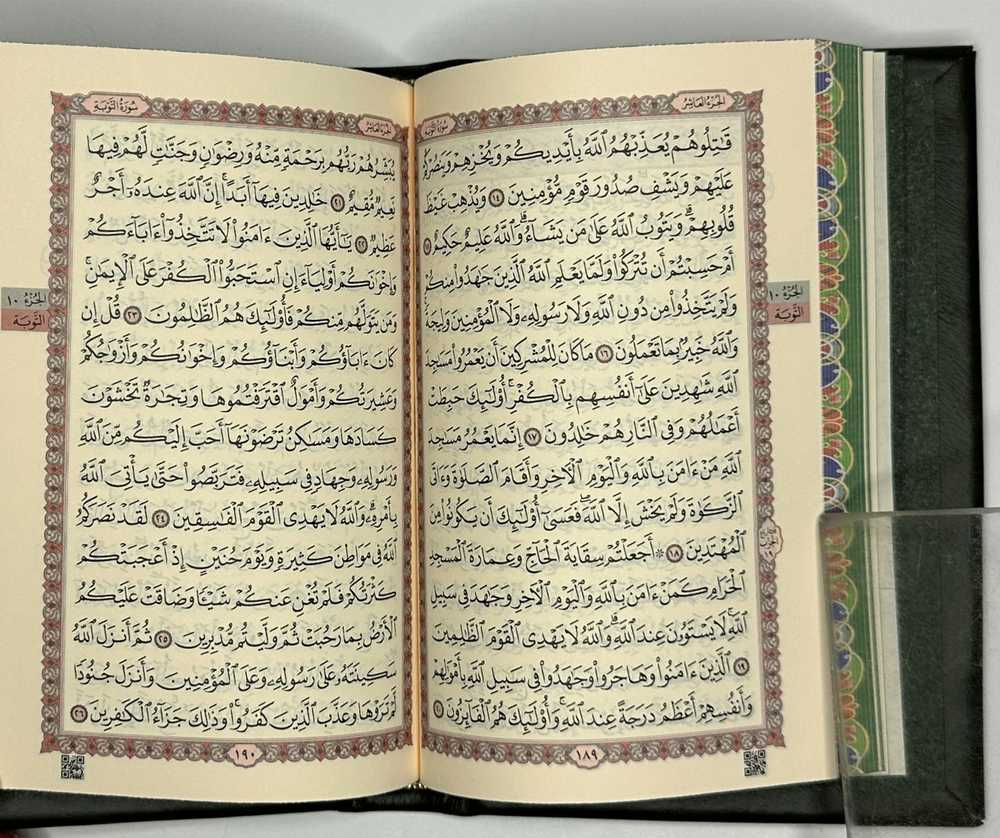 الجزء العاشر
سورة التوبة
قَٰتِلُوهُمْ يُعَذِّبْهُمُ ٱللَّهُ بِأَيْدِيكُمْ وَيُخْزِهِمْ وَيَنصُرْكُمْ
عَلَيْهِمْ وَيَشْفِ صُدُورَ قَوْمٍ مُّؤْمِنِينَ ١٤ وَيُذْهِبْ غَيْظَ
قُلُوبِهِمْ ۗ وَيَتُوبُ ٱللَّهُ عَلَىٰ مَن يَشَآءُ ۗ وَٱللَّهُ عَلِيمٌ حَكِيمٌ ١٥
أَمْ حَسِبْتُمْ أَن تُتْرَكُوا۟ وَلَمَّا يَعْلَمِ ٱللَّهُ ٱلَّذِينَ جَٰهَدُوا۟ مِنكُمْ
وَلَمْ يَتَّخِذُوا۟ مِن دُونِ ٱللَّهِ وَلَا رَسُولِهِۦ وَلَا ٱلْمُؤْمِنِينَ وَلِيجَةً ۚ
وَٱللَّهُ خَبِيرٌۢ بِمَا تَعْمَلُونَ ١٦ مَا كَانَ لِلْمُشْرِكِينَ أَن يَعْمُرُوا۟ مَسَٰجِدَ
ٱللَّهِ شَٰهِدِينَ عَلَىٰٓ أَنفُسِهِم بِٱلْكُفْرِ ۚ أُو۟لَٰٓئِكَ حَبِطَتْ
أَعْمَٰلُهُمْ وَفِى ٱلنَّارِ هُمْ خَٰلِدُونَ ١٧ إِنَّمَا يَعْمُرُ مَسَٰجِدَ
ٱللَّهِ مَنْ ءَامَنَ بِٱللَّهِ وَٱلْيَوْمِ ٱلْءَاخِرِ وَأَقَامَ ٱلصَّلَوٰةَ وَءَاتَى
ٱلزَّكَوٰةَ وَلَمْ يَخْشَ إِلَّا ٱللَّهَ ۖ فَعَسَىٰٓ أُو۟لَٰٓئِكَ أَن يَكُونُوا۟ مِنَ
ٱلْمُهْتَدِينَ ١٨ ۞ أَجَعَلْتُمْ سِقَايَةَ ٱلْحَآجِّ وَعِمَارَةَ ٱلْمَسْجِدِ
ٱلْحَرَامِ كَمَنْ ءَامَنَ بِٱللَّهِ وَٱلْيَوْمِ ٱلْءَاخِرِ وَجَٰهَدَ فِى سَبِيلِ
ٱللَّهِ ۚ لَا يَسْتَوُۥنَ عِندَ ٱللَّهِ ۗ وَٱللَّهُ لَا يَهْدِى ٱلْقَوْمَ ٱلظَّٰلِمِينَ
١٩ ٱلَّذِينَ ءَامَنُوا۟ وَهَاجَرُوا۟ وَجَٰهَدُوا۟ فِى سَبِيلِ ٱللَّهِ بِأَمْوَٰلِهِمْ
وَأَنفُسِهِمْ أَعْظَمُ دَرَجَةً عِندَ ٱللَّهِ ۚ وَأُو۟لَٰٓئِكَ هُمُ ٱلْفَآئِزُونَ ٢٠
١٨٩
الجزء ١٠
التوبة
سورة التوبة
الجزء العاشر
يُبَشِّرُهُمْ رَبُّهُم بِرَحْمَةٍ مِّنْهُ وَرِضْوَٰنٍ وَجَنَّٰتٍ لَّهُمْ فِيهَا
نَعِيمٌ مُّقِيمٌ ٢١ خَٰلِدِينَ فِيهَآ أَبَدًا ۚ إِنَّ ٱللَّهَ عِندَهُۥٓ أَجْرٌ
عَظِيمٌ ٢٢ يَٰٓأَيُّهَا ٱلَّذِينَ ءَامَنُوا۟ لَا تَتَّخِذُوٓا۟ ءَابَآءَكُمْ
وَإِخْوَٰنَكُمْ أَوْلِيَآءَ إِنِ ٱسْتَحَبُّوا۟ ٱلْكُفْرَ عَلَى ٱلْإِيمَٰنِ ۚ
وَمَن يَتَوَلَّهُم مِّنكُمْ فَأُو۟لَٰٓئِكَ هُمُ ٱلظَّٰلِمُونَ ٢٣ قُلْ إِن
كَانَ ءَابَآؤُكُمْ وَأَبْنَآؤُكُمْ وَإِخْوَٰنُكُمْ وَأَزْوَٰجُكُمْ
وَعَشِيرَتُكُمْ وَأَمْوَٰلٌ ٱقْتَرَفْتُمُوهَا وَتِجَٰرَةٌ تَخْشَوْنَ
كَسَادَهَا وَمَسَٰكِنُ تَرْضَوْنَهَآ أَحَبَّ إِلَيْكُم مِّنَ ٱللَّهِ
وَرَسُولِهِۦ وَجِهَادٍ فِى سَبِيلِهِۦ فَتَرَبَّصُوا۟ حَتَّىٰ يَأْتِىَ ٱللَّهُ
بِأَمْرِهِۦ ۗ وَٱللَّهُ لَا يَهْدِى ٱلْقَوْمَ ٱلْفَٰسِقِينَ ٢٤ لَقَدْ نَصَرَكُمُ
ٱللَّهُ فِى مَوَاطِنَ كَثِيرَةٍ ۙ وَيَوْمَ حُنَيْنٍ ۙ إِذْ أَعْجَبَتْكُمْ
كَثْرَتُكُمْ فَلَمْ تُغْنِ عَنكُمْ شَيْـًٔا وَضَاقَتْ عَلَيْكُمُ
ٱلْأَرْضُ بِمَا رَحُبَتْ ثُمَّ وَلَّيْتُم مُّدْبِرِينَ ٢٥ ثُمَّ أَنزَلَ ٱللَّهُ
سَكِينَتَهُۥ عَلَىٰ رَسُولِهِۦ وَعَلَى ٱلْمُؤْمِنِينَ وَأَنزَلَ جُنُودًا
لَّمْ تَرَوْهَا وَعَذَّبَ ٱلَّذِينَ كَفَرُوا۟ ۚ وَذَٰلِكَ جَزَآءُ ٱلْكَٰفِرِينَ ٢٦
١٩٠
الجزء ١٠
التوبة